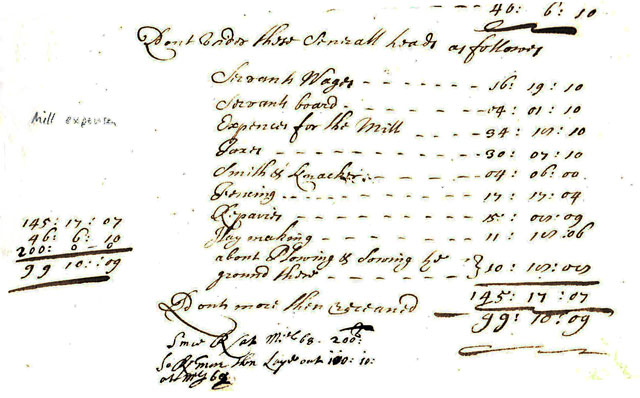 46: 6: 10
under these Severall heads as followes
Servants Wages - - - - - - 16: 19: 10
Servants board - - - - - 04: 01: 10
Mill expenses
Expences for the Mill - - - - 34: : 10
Taxes - - - - - - 30: 07: 10
Smith & - - - - 04: 06: 00
Fencing - - - - - - 17: 17: 04
Repaires - - - - - 15: : 09
Hay making - - - - 11: : 06
about Plowing & Sowing the
ground there - - - } 10: :
145: 17: 07
145: 17: 07
46: 6: 10
200: 0 - 0
99 10: 09
more then receaved 99: 10: 09
Since at 68. 200:
more then Layd out 100: 10:
at 69